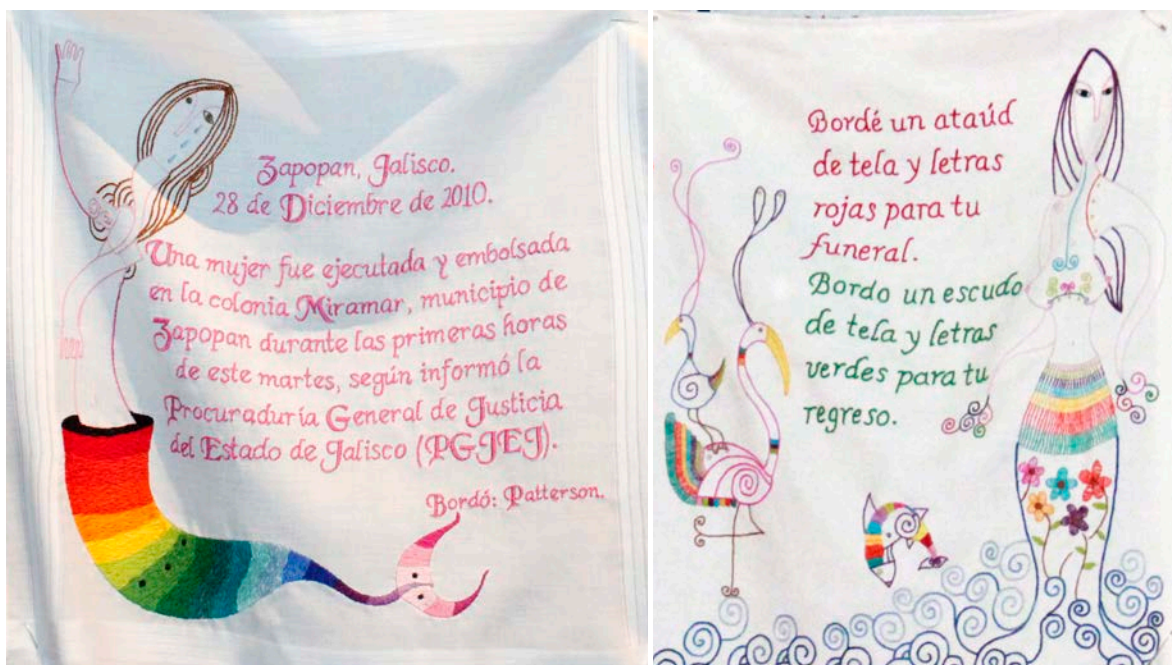 Zapopan, Jalisco.
28 de Diciembre de 2010.
Una mujer fue ejecutada y embolsada
en la colonia Miramar, municipio de
Zapopan durante las primeras horas
de este martes, según informó la
Procuraduría General de Justicia
del Estado de Jalisco (PGJEJ).
Bordó: Patterson.
Bordé un ataúd
de tela y letras
rojas para tu
funeral.
Bordo un escudo
de tela y letras
verdes para tu
regreso.